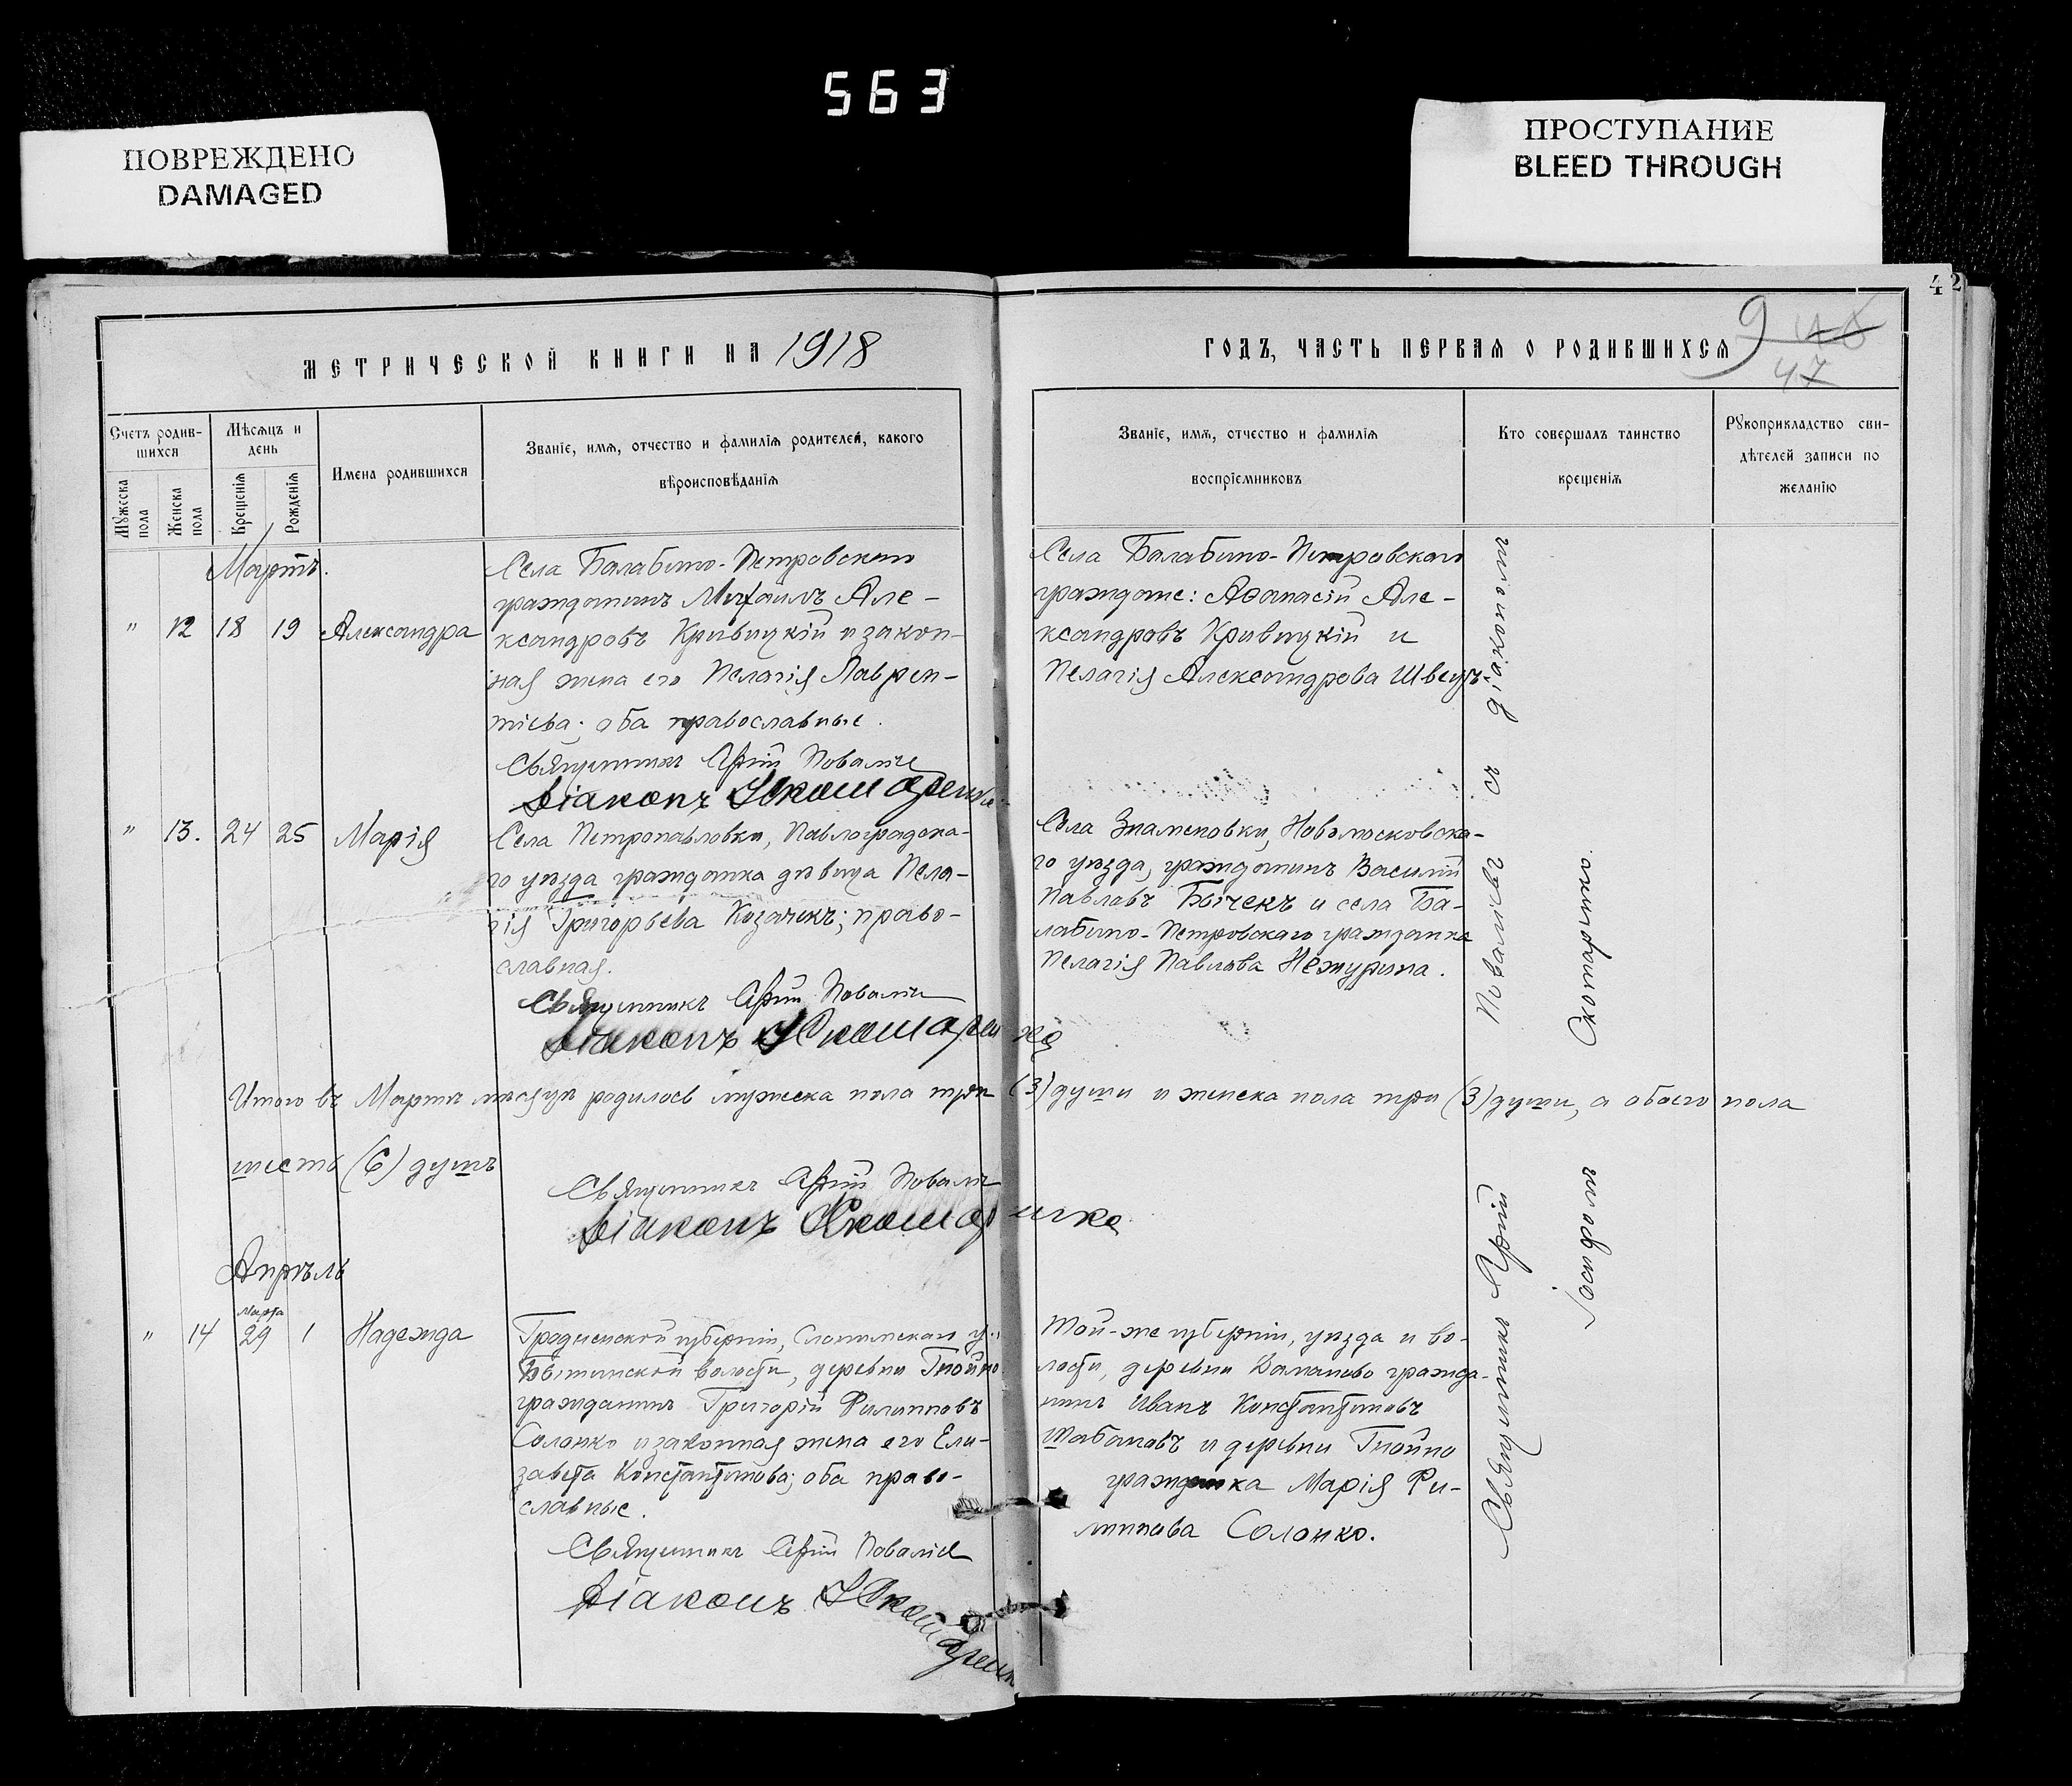 563
ПОВРЕЖДЕНО
DAMAGED
ПРОСТУПАНИЕ
BLEED THROUGH
42
МЕТРИЧЕСКОЙ КНИГИ НА 1918
ГОДЪ, ЧАСТЬ ПЕРВАЯ О РОДИВШИХСЯ
9
46
47
Счетъ родив-
шихся
Мѣсяцъ и
день
Мужеска
пола
Женска
пола
Крещенія
Рожденія
Имена родившихся
Званіе, имя, отчество и фамилія родителей, какого
вѣроисповѣданія
Званіе, имя, отчество и фамилія
воспріемниковъ
Кто совершалъ таинство
крещенія
Рукоприкладство сви-
дѣтелей записи по
желанію
Мартъ.
" 12 18 19 Александра
Села Балабино-Петровскаго
гражданинъ Михаилъ Але-
ксандровъ Кривицкій и закон-
ная жена его Пелагія Лаврен-
тіева; оба православные.
Священникъ Арій
Діаконъ І Скотаренко
Села Балабино-Петровскаго
граждане: Аѳанасій Але-
ксандровъ Кривицкій и
Пелагія Александрова Швецъ.
" 13. 24 25 Марія
Села Петропавловки, Павлоградска-
го уѣзда гражданка дѣвица Пела-
гія Григорьева Козачекъ; право-
славная.
Священникъ Арій
Діаконъ І Скотаренко
Села Знаменовки, Новомосковска-
го уѣзда, гражданинъ Василій
Павловъ Бычекъ и села Ба-
лабино-Петровскаго гражданка
Пелагія Павлова Нежурина.
Итого въ Мартѣ мѣсяцѣ родилось мужеска пола три (3) души и женска пола три (3) души, а обоего пола
шесть (6) душъ
Священникъ Арій
Діаконъ Скотаренко
Апрѣль
Марта
" 14 29 1 Надежда
Гродненской губерніи, Слонимскаго у.,
Бытенской волости, деревни Гнойно
гражданинъ Григорій Филипповъ
Солонко и законная жена его Ели-
завета Константинова; оба право-
славные.
Священникъ Арій
Діаконъ І Скотаренко
Той-же губерніи, уѣзда и во-
лости, деревни Доманово гражда-
нинъ Иванъ Константиновъ
и деревни Гнойно
гражданка Марія Фи-
липпова Солонко.
Священникъ Арій съ діакономъ
Іосифомъ Скотаренко.